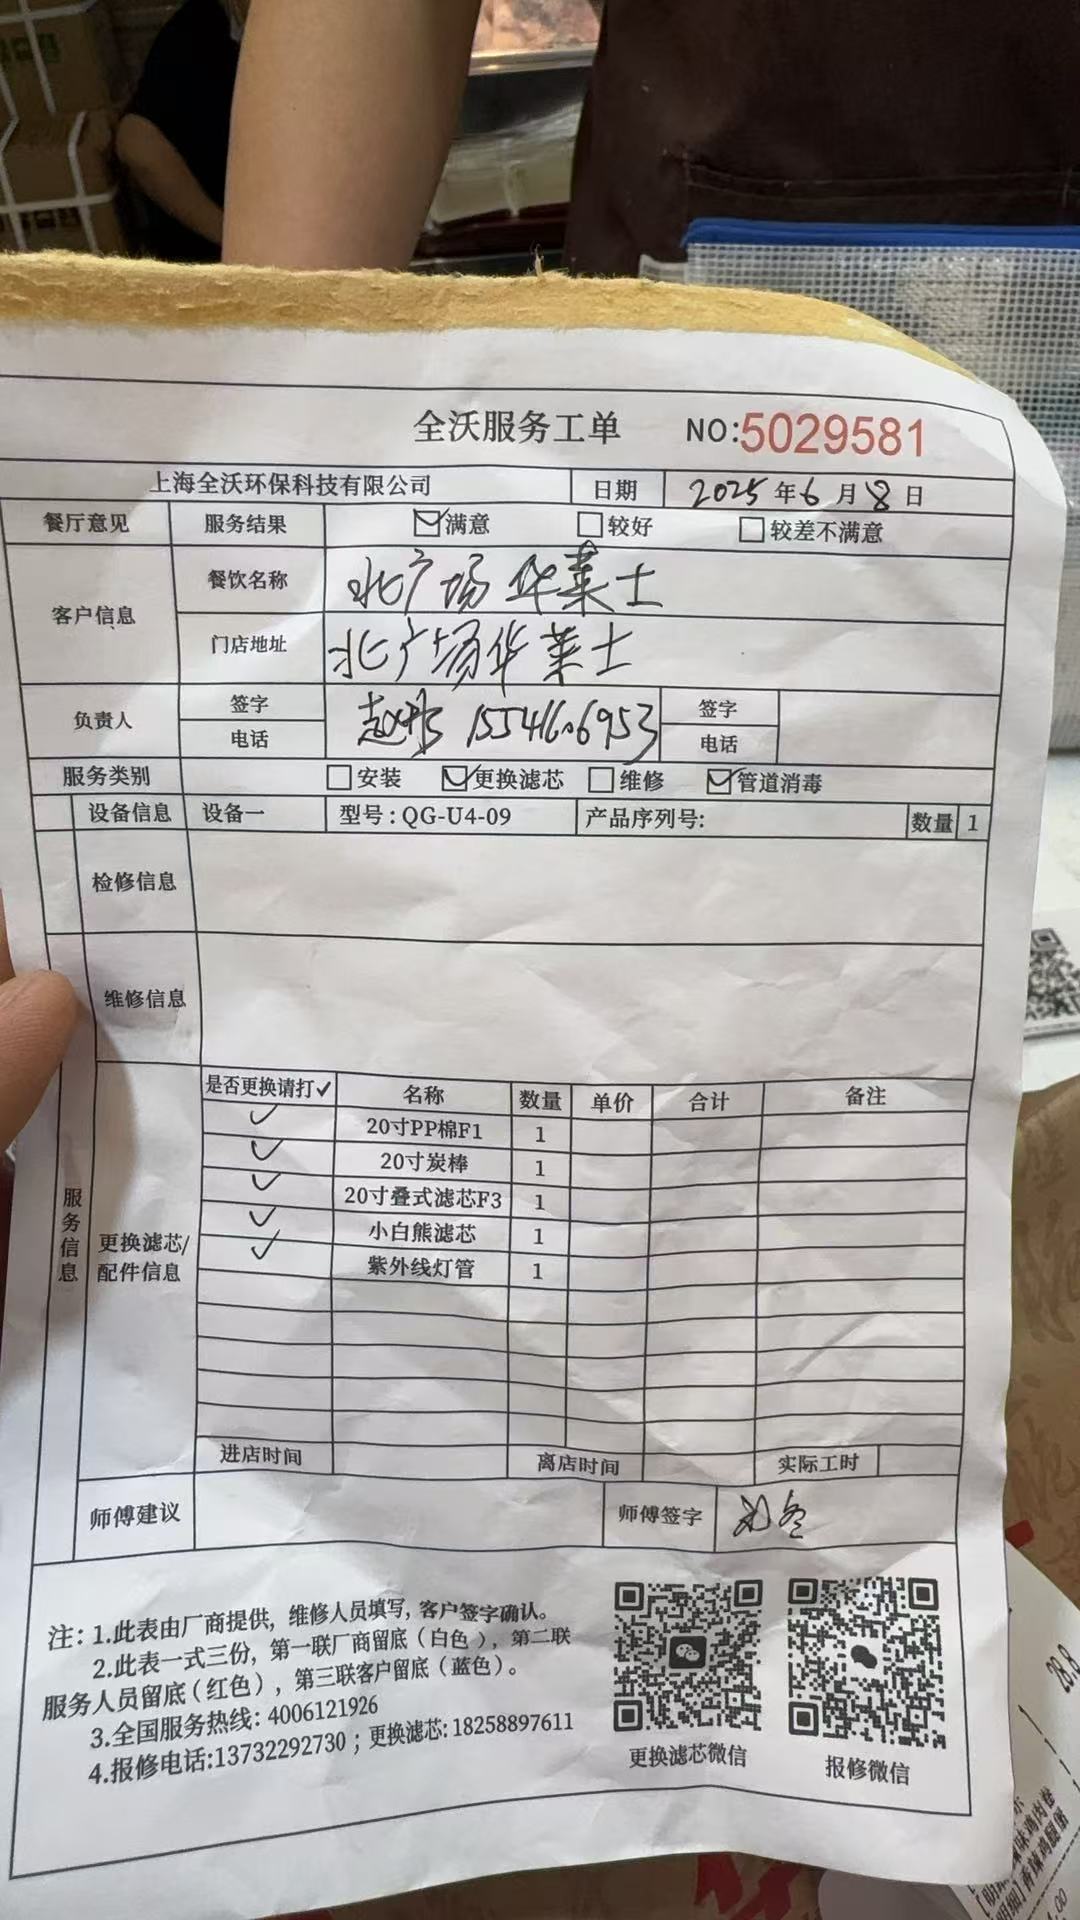 全沃服务工单 NO:5029581
上海全沃环保科技有限公司 日期 2025年6月8日
餐厅意见 服务结果 满意 较好 较差不满意
客户信息 餐饮名称 北广场华莱士
门店地址 北广场华莱士
负责人 签字 签字
电话 15541606953 电话
服务类别 安装 更换滤芯 维修 管道消毒
设备信息 设备一 型号:QG-U4-09 产品序列号: 数量 1
检修信息
维修信息
服务信息
更换滤芯/
配件信息
是否更换请打✓ 名称 数量 单价 合计 备注
✓ 20寸PP棉F1 1
✓ 20寸炭棒 1
✓ 20寸叠式滤芯F3 1
✓ 小白熊滤芯 1
✓ 紫外线灯管 1
进店时间 离店时间 实际工时
师傅建议 师傅签字
注:1.此表由厂商提供,维修人员填写,客户签字确认。
2.此表一式三份,第一联厂商留底(白色),第二联
服务人员留底(红色),第三联客户留底(蓝色)。
3.全国服务热线:4006121926
4.报修电话:13732292730;更换滤芯:18258897611
更换滤芯微信 报修微信
28.8